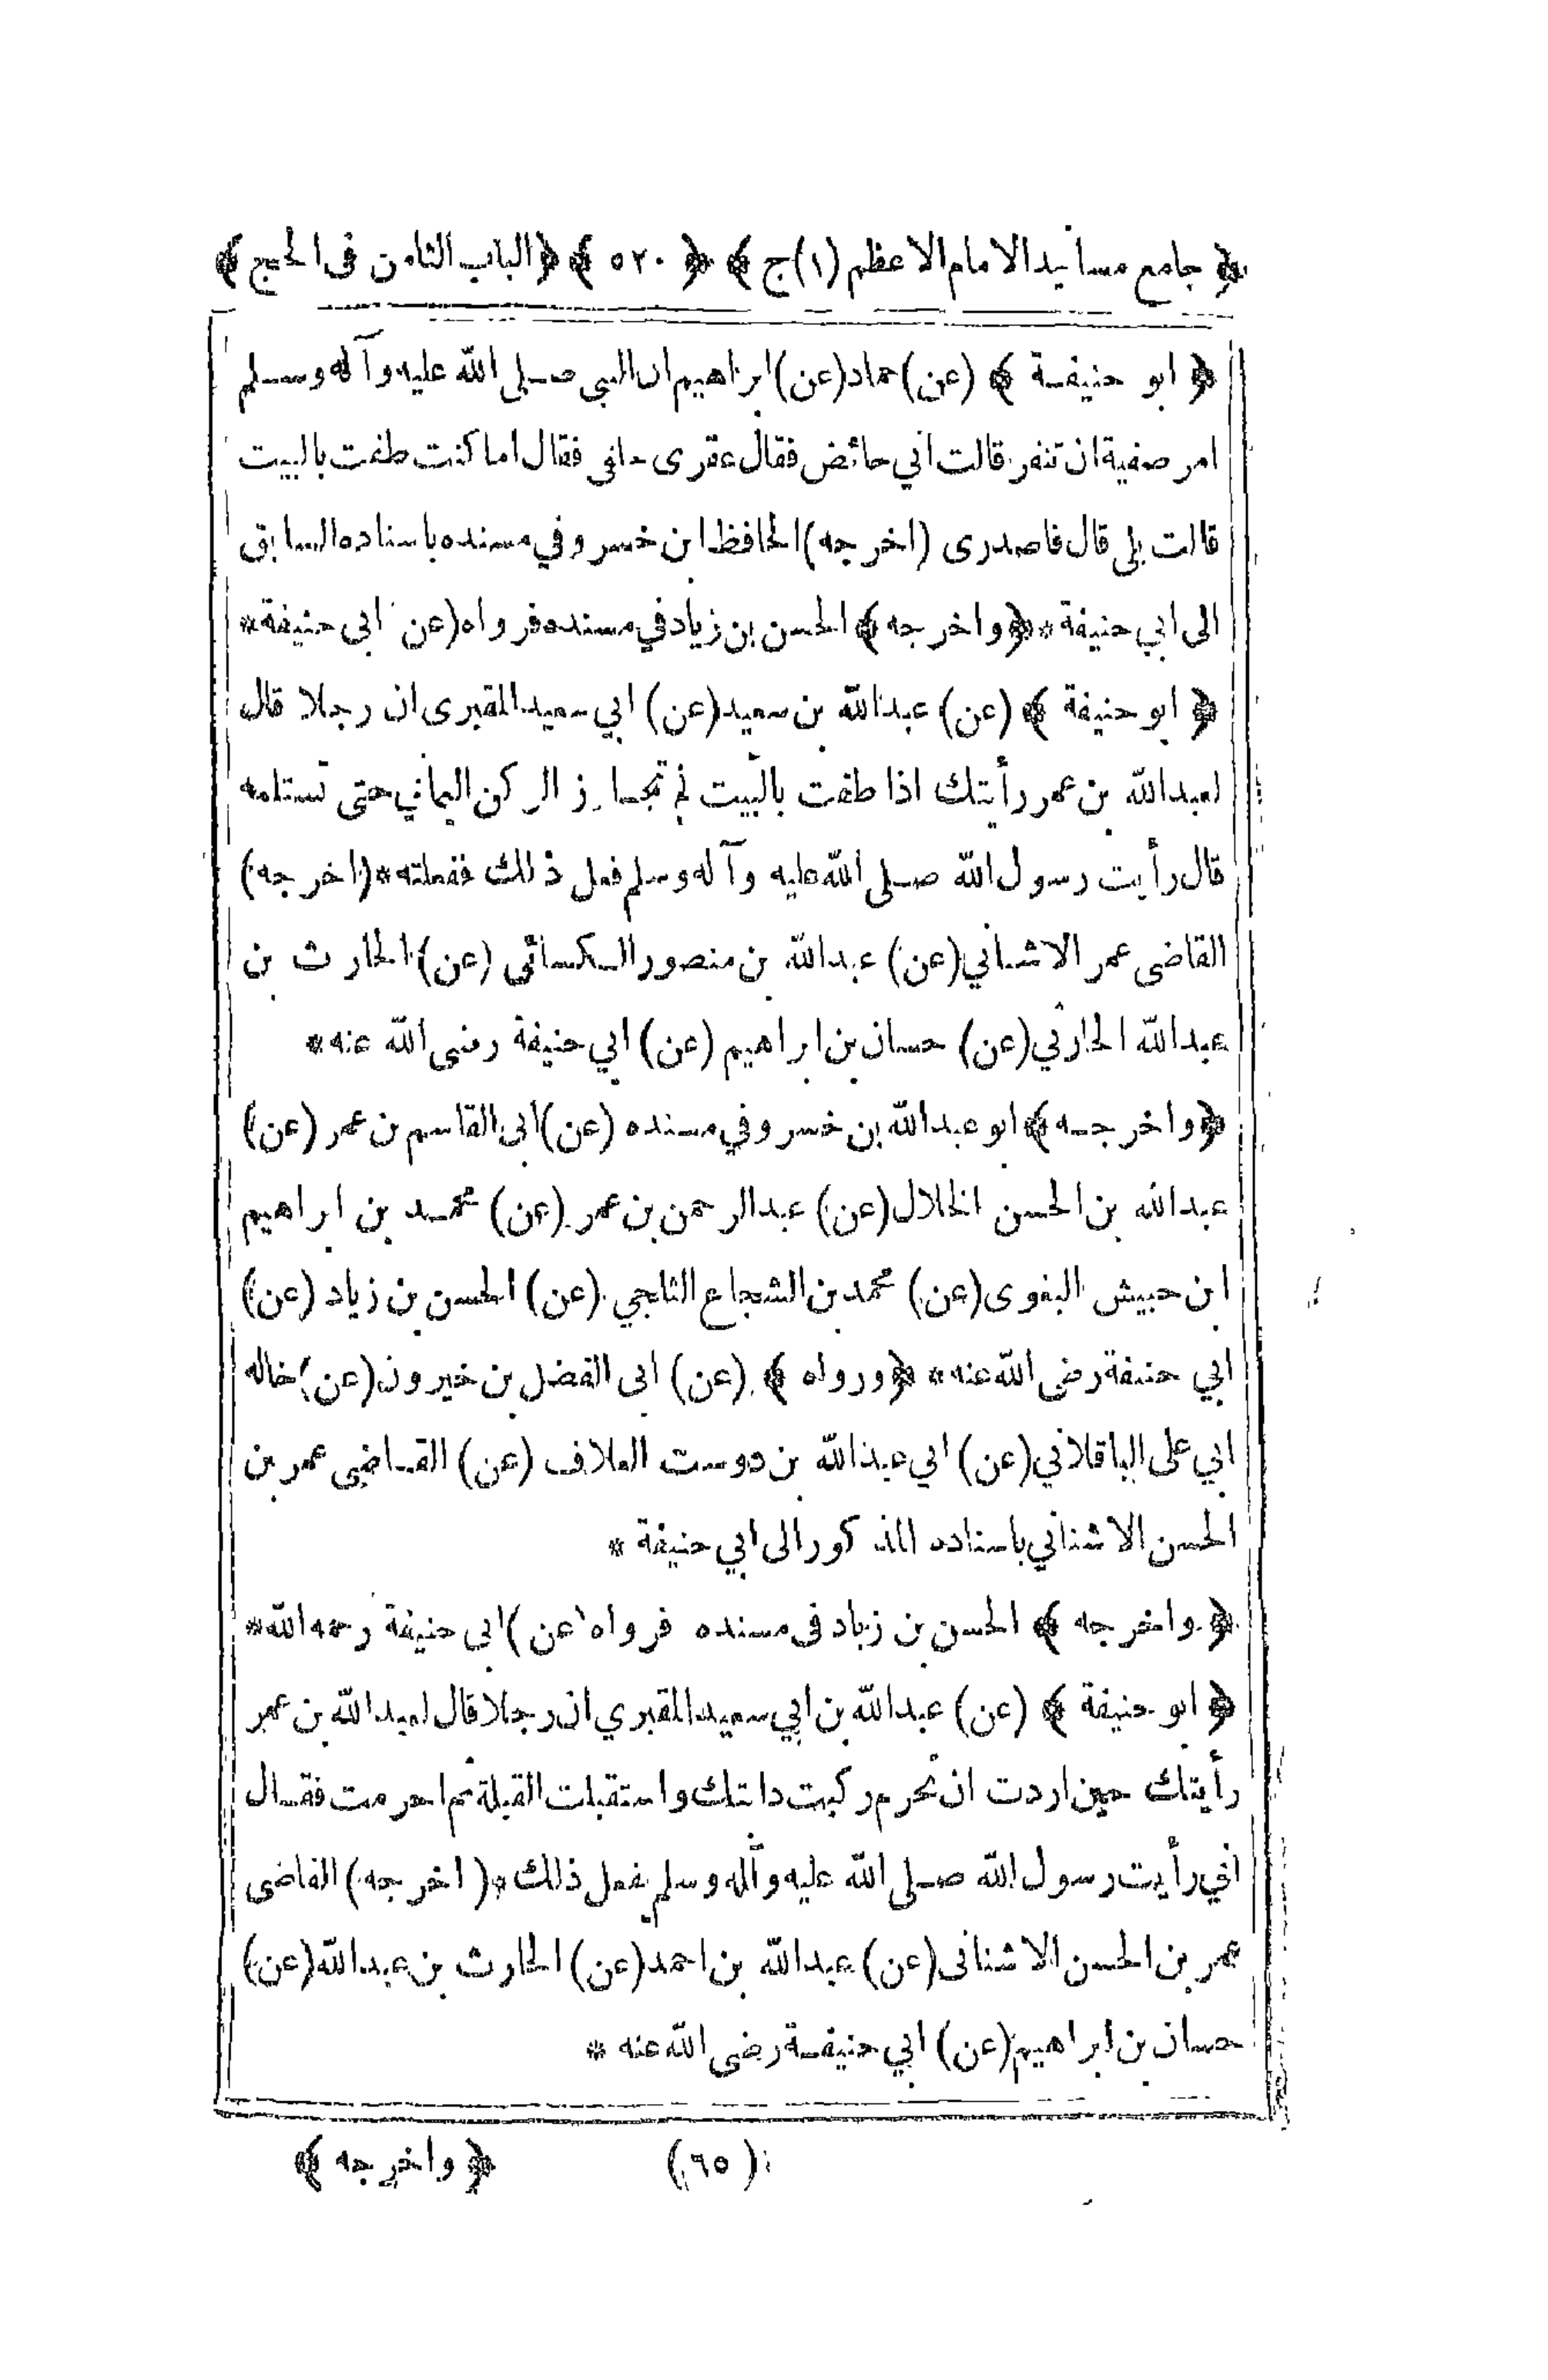 ﴿ جامع مسانيد الامام الاعظم (١) ج ﴾ ﴿ ٥٢٠ ﴾ ﴿ الباب الثامن فى الحج ﴾
﴿ ابو حنيفة ﴾ (عن) حماد (عن) ابراهيم ان النبى صلى الله عليه وآله وسلم
امر صفية ان تنفر قالت انى حائض فقال عقرى حلقى فقال اما كنت طفت بالبيت
قالت بلى قال فاصدرى (اخرجه) الحافظ ابن خسرو في مسنده باسناده السابق
الى ابي حنيفة * ﴿ واخرجه ﴾ الحسن بن زياد في مسنده فرواه (عن ابى حنيفة *
﴿ ابو حنيفة ﴾ (عن) عبد الله بن سعيد (عن) ابي سعيد المقبرى ان رجلا قال
لعبد الله بن عمر رأيتك اذا طفت بالبيت لم تجاوز الركن اليماني حتى تستلمه
قال رأيت رسول الله صلى الله عليه وآله وسلم فعل ذلك ففعلته * (اخرجه)
القاضى عمر الاشناني (عن) عبد الله بن منصور الكسائى (عن) الحارث بن
عبد الله الحارثي (عن) حسان بن ابراهيم (عن) ابي حنيفة رضى الله عنه *
﴿ واخرجه ﴾ ابو عبد الله بن خسرو في مسنده (عن) ابى القاسم بن عمر (عن)
عبد الله بن الحسن الخلال (عن) عبد الرحمن بن عمر (عن) محمد بن ابراهيم
ابن حبيش البغوى (عن) محمد بن الشجاع الثلجي (عن) الحسن بن زياد (عن)
ابي حنيفة رضى الله عنه * ﴿ ورواه ﴾ (عن) ابى الفضل بن خيرون (عن) خاله
ابي على الباقلاني (عن) ابي عبد الله بن دوست العلاف (عن) القاضى عمر بن
الحسن الاشناني باسناده المذكور الى ابي حنيفة *
﴿ واخرجه ﴾ الحسن بن زياد فى مسنده فرواه (عن) ابى حنيفة رحمه الله *
﴿ ابو حنيفة ﴾ (عن) عبد الله بن ابي سعيد المقبري ان رجلا قال لعبد الله بن عمر
رأيتك حين اردت ان تحرم ركبت دابتك واستقبلت القبلة ثم احرمت فقال
انى رأيت رسول الله صلى الله عليه وآله وسلم يفعل ذلك * (اخرجه) القاضى
عمر بن الحسن الاشنانى (عن) عبد الله بن احمد (عن) الحارث بن عبد الله (عن)
حسان بن ابراهيم (عن) ابي حنيفة رضى الله عنه *
(٦٥) ﴿ واخرجه ﴾